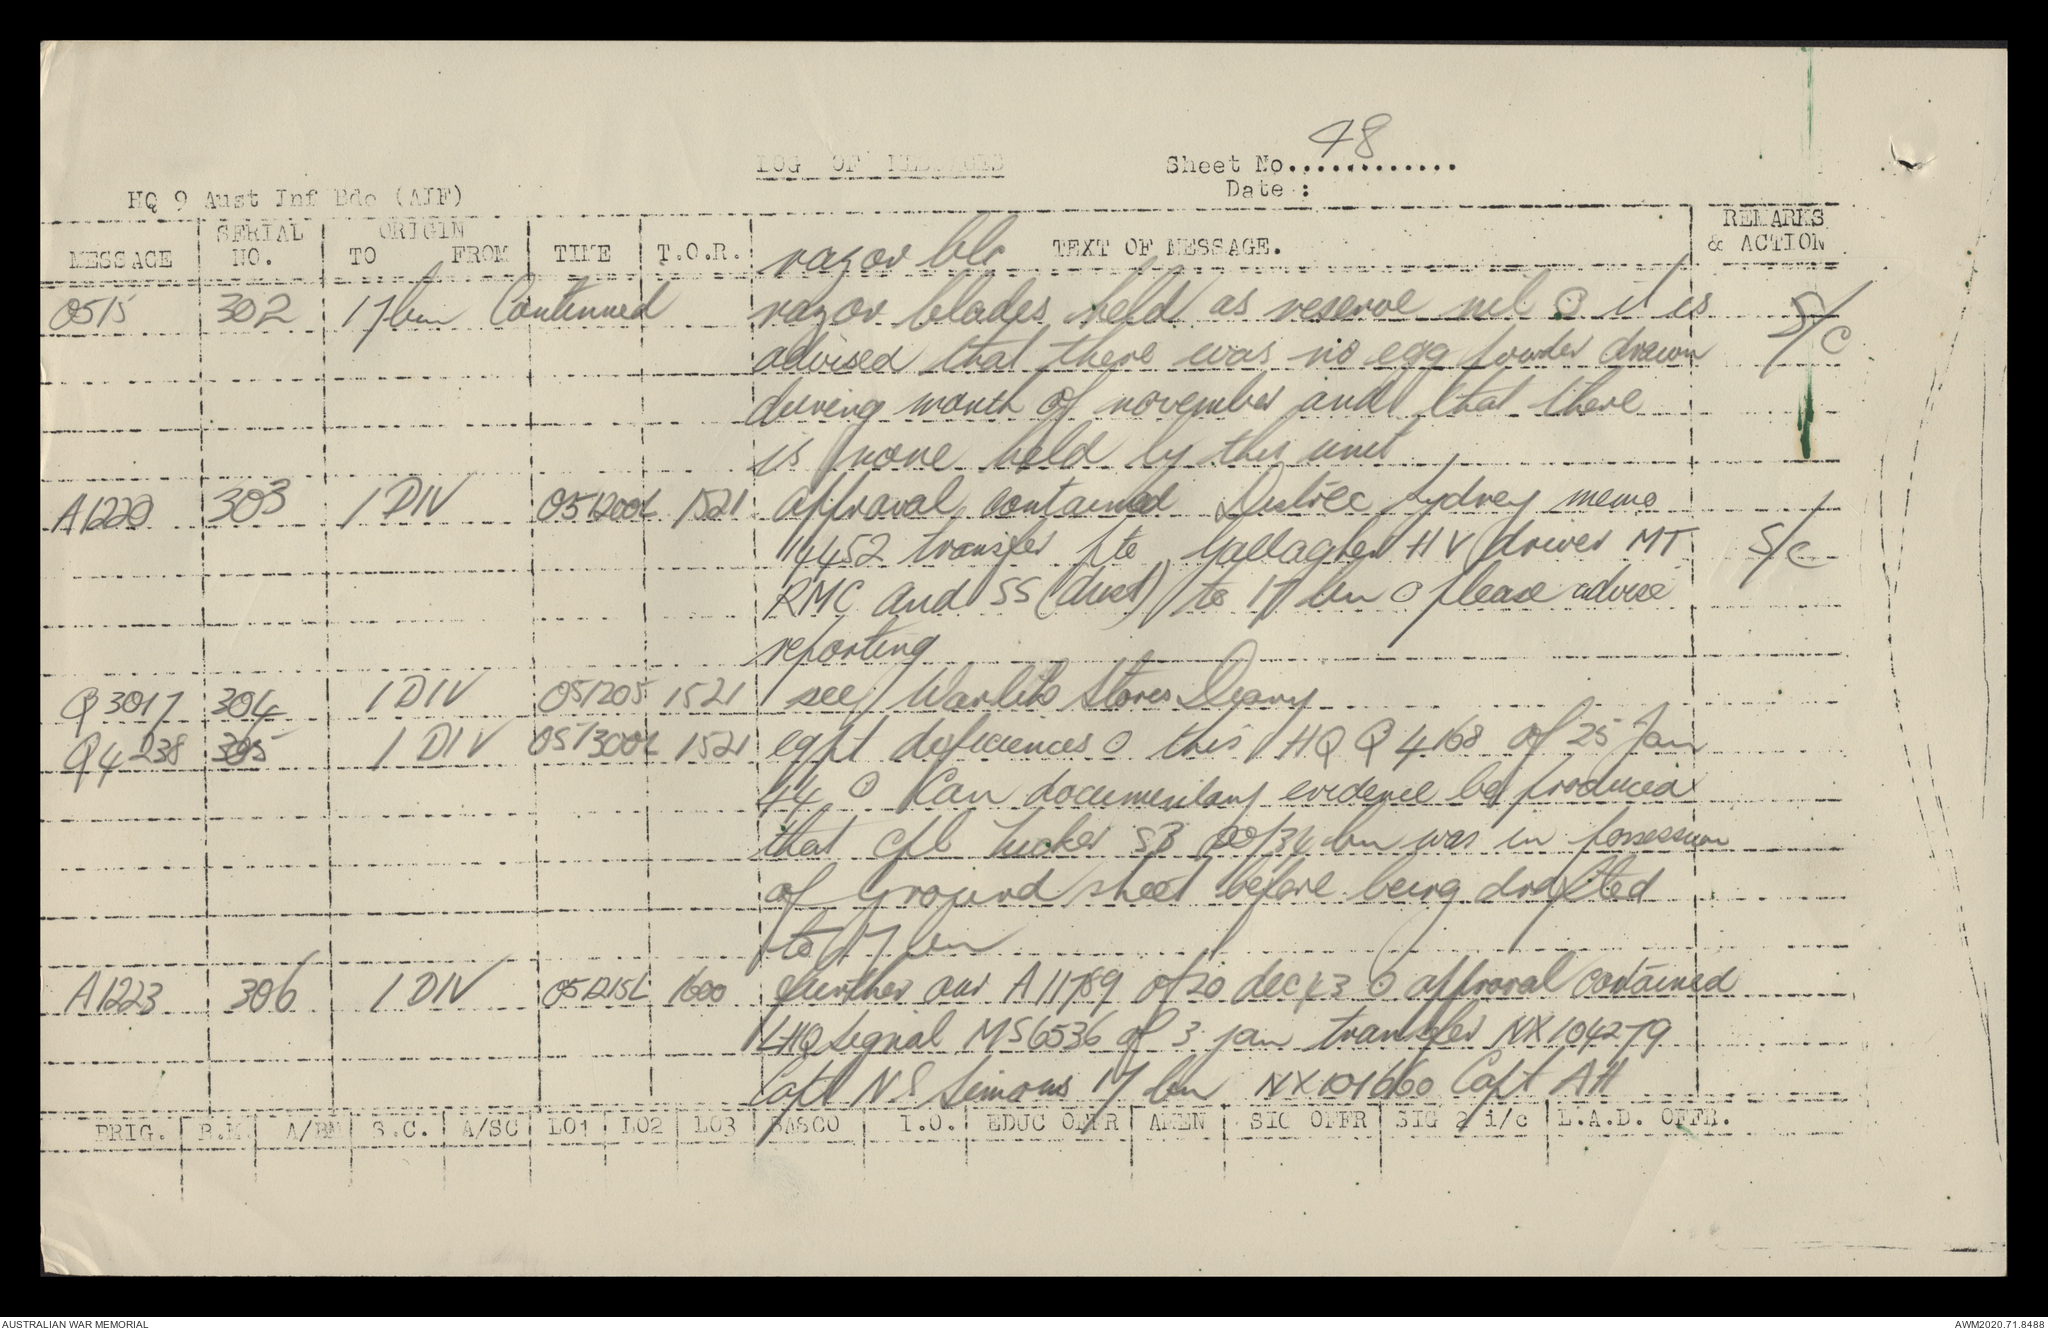 48
LOG OF MESSAGES
Sheet No.............
Date :
HQ 9 Aust Inf Bde (AIF)
MESSAGE SERIAL NO. ORIGIN TO FROM TIME T.O.R. TEXT OF MESSAGE. REMARKS & ACTION
razor bla
0515 302 17 bn Continued razor blades held as reserve nil ⊙ it is S/C
advised that there was no egg powder drawn
during month of november and that there
is none held by this unit
A1220 303 1 DIV 051200L 1521 approval contained Sydney memo
14452 transfer pte Gallagher HV driver MT S/C
RMC and SS (Aust) to 17 bn ⊙ please advise
reporting
Q3017 304 1 DIV 051205 1521 see Warlike Stores Diary
Q4238 305 1 DIV 051300L 1521 eqpt deficiences ⊙ this HQ Q4168 of 25 Jan
44 ⊙ Can documentary evidence be produced
that cpl Tucker SB of 34 bn was in possession
of Ground sheet before being drafted
to 17 bn
A1223 306 1 DIV 051215L 1600 further our A11789 of 20 dec 43 ⊙ approval contained
LHQ signal MS6536 of 3 jan transfer NX104279
Capt NS Simons 17 bn Capt AH
BRIG. B.M. A/BM S.C. A/SC LO1 LO2 LO3 BASCO I.O. EDUC OFFR AMEN SIG OFFR SIG 2 i/c L.A.D. OFFR.
AUSTRALIAN WAR MEMORIAL
AWM2020.71.8488